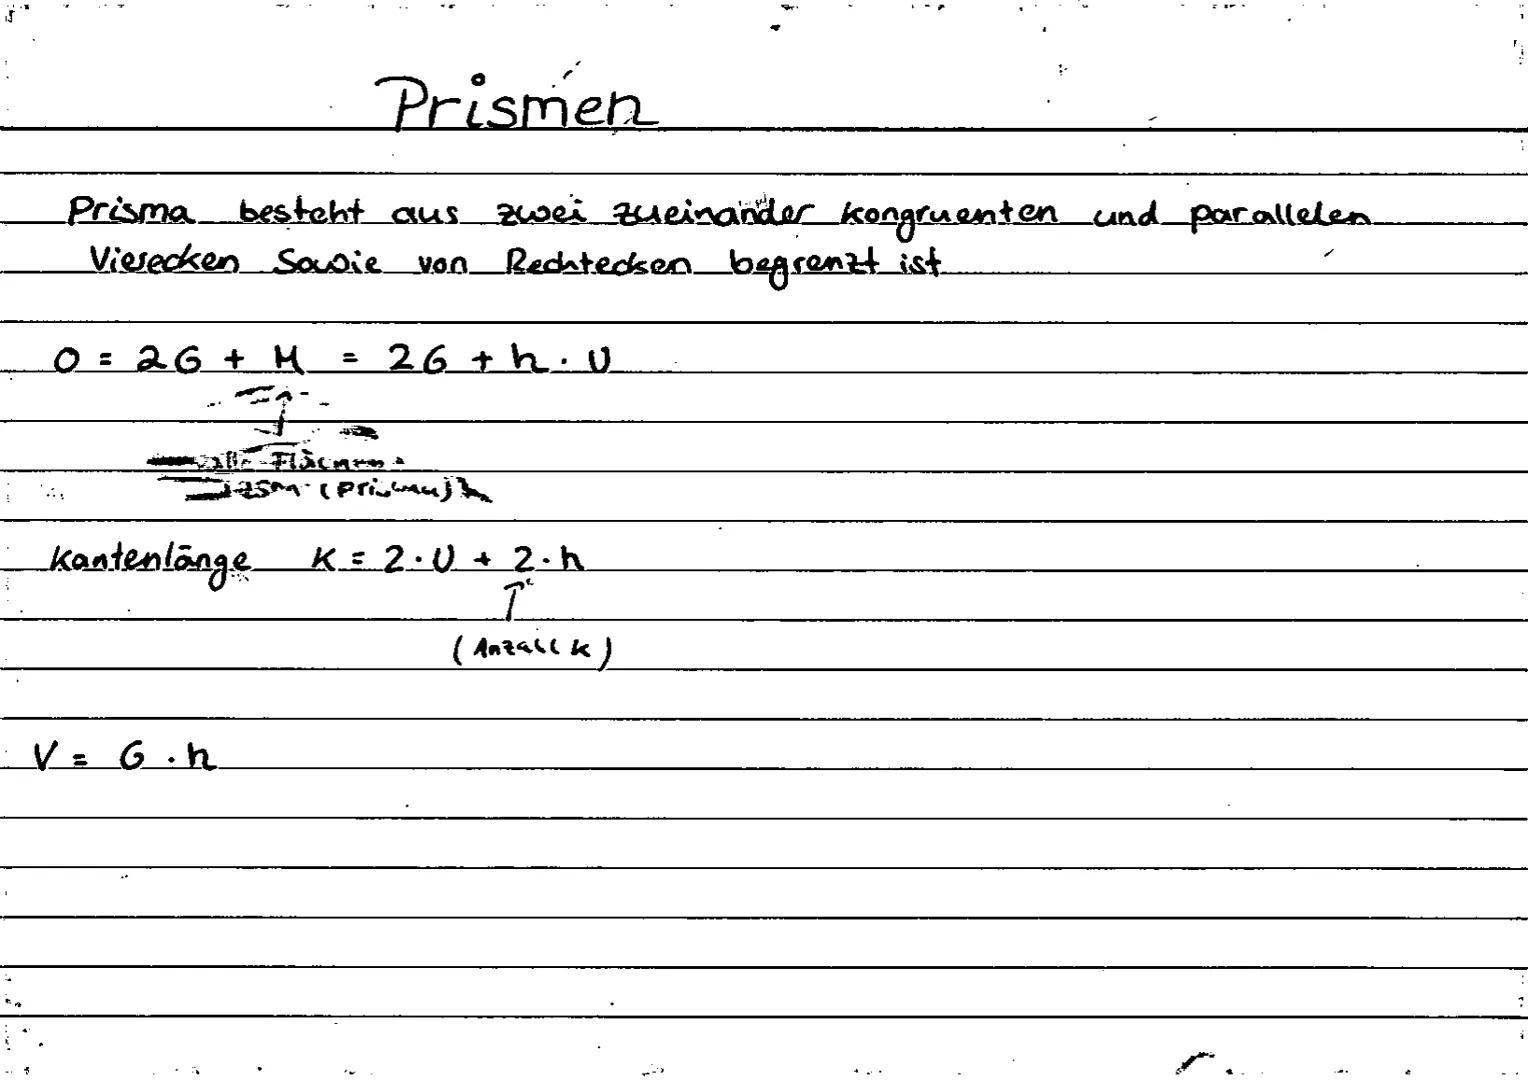 Prismen
Prisma besteht aus zwei zueinander kongruenten und parallelen
Vierecken sowie von Rechtecken begrenzt ist
O = 2G + M = 2G + h · U
Kantenlänge K = 2 · U + 2 · h
(Anzall k)
V = G · h